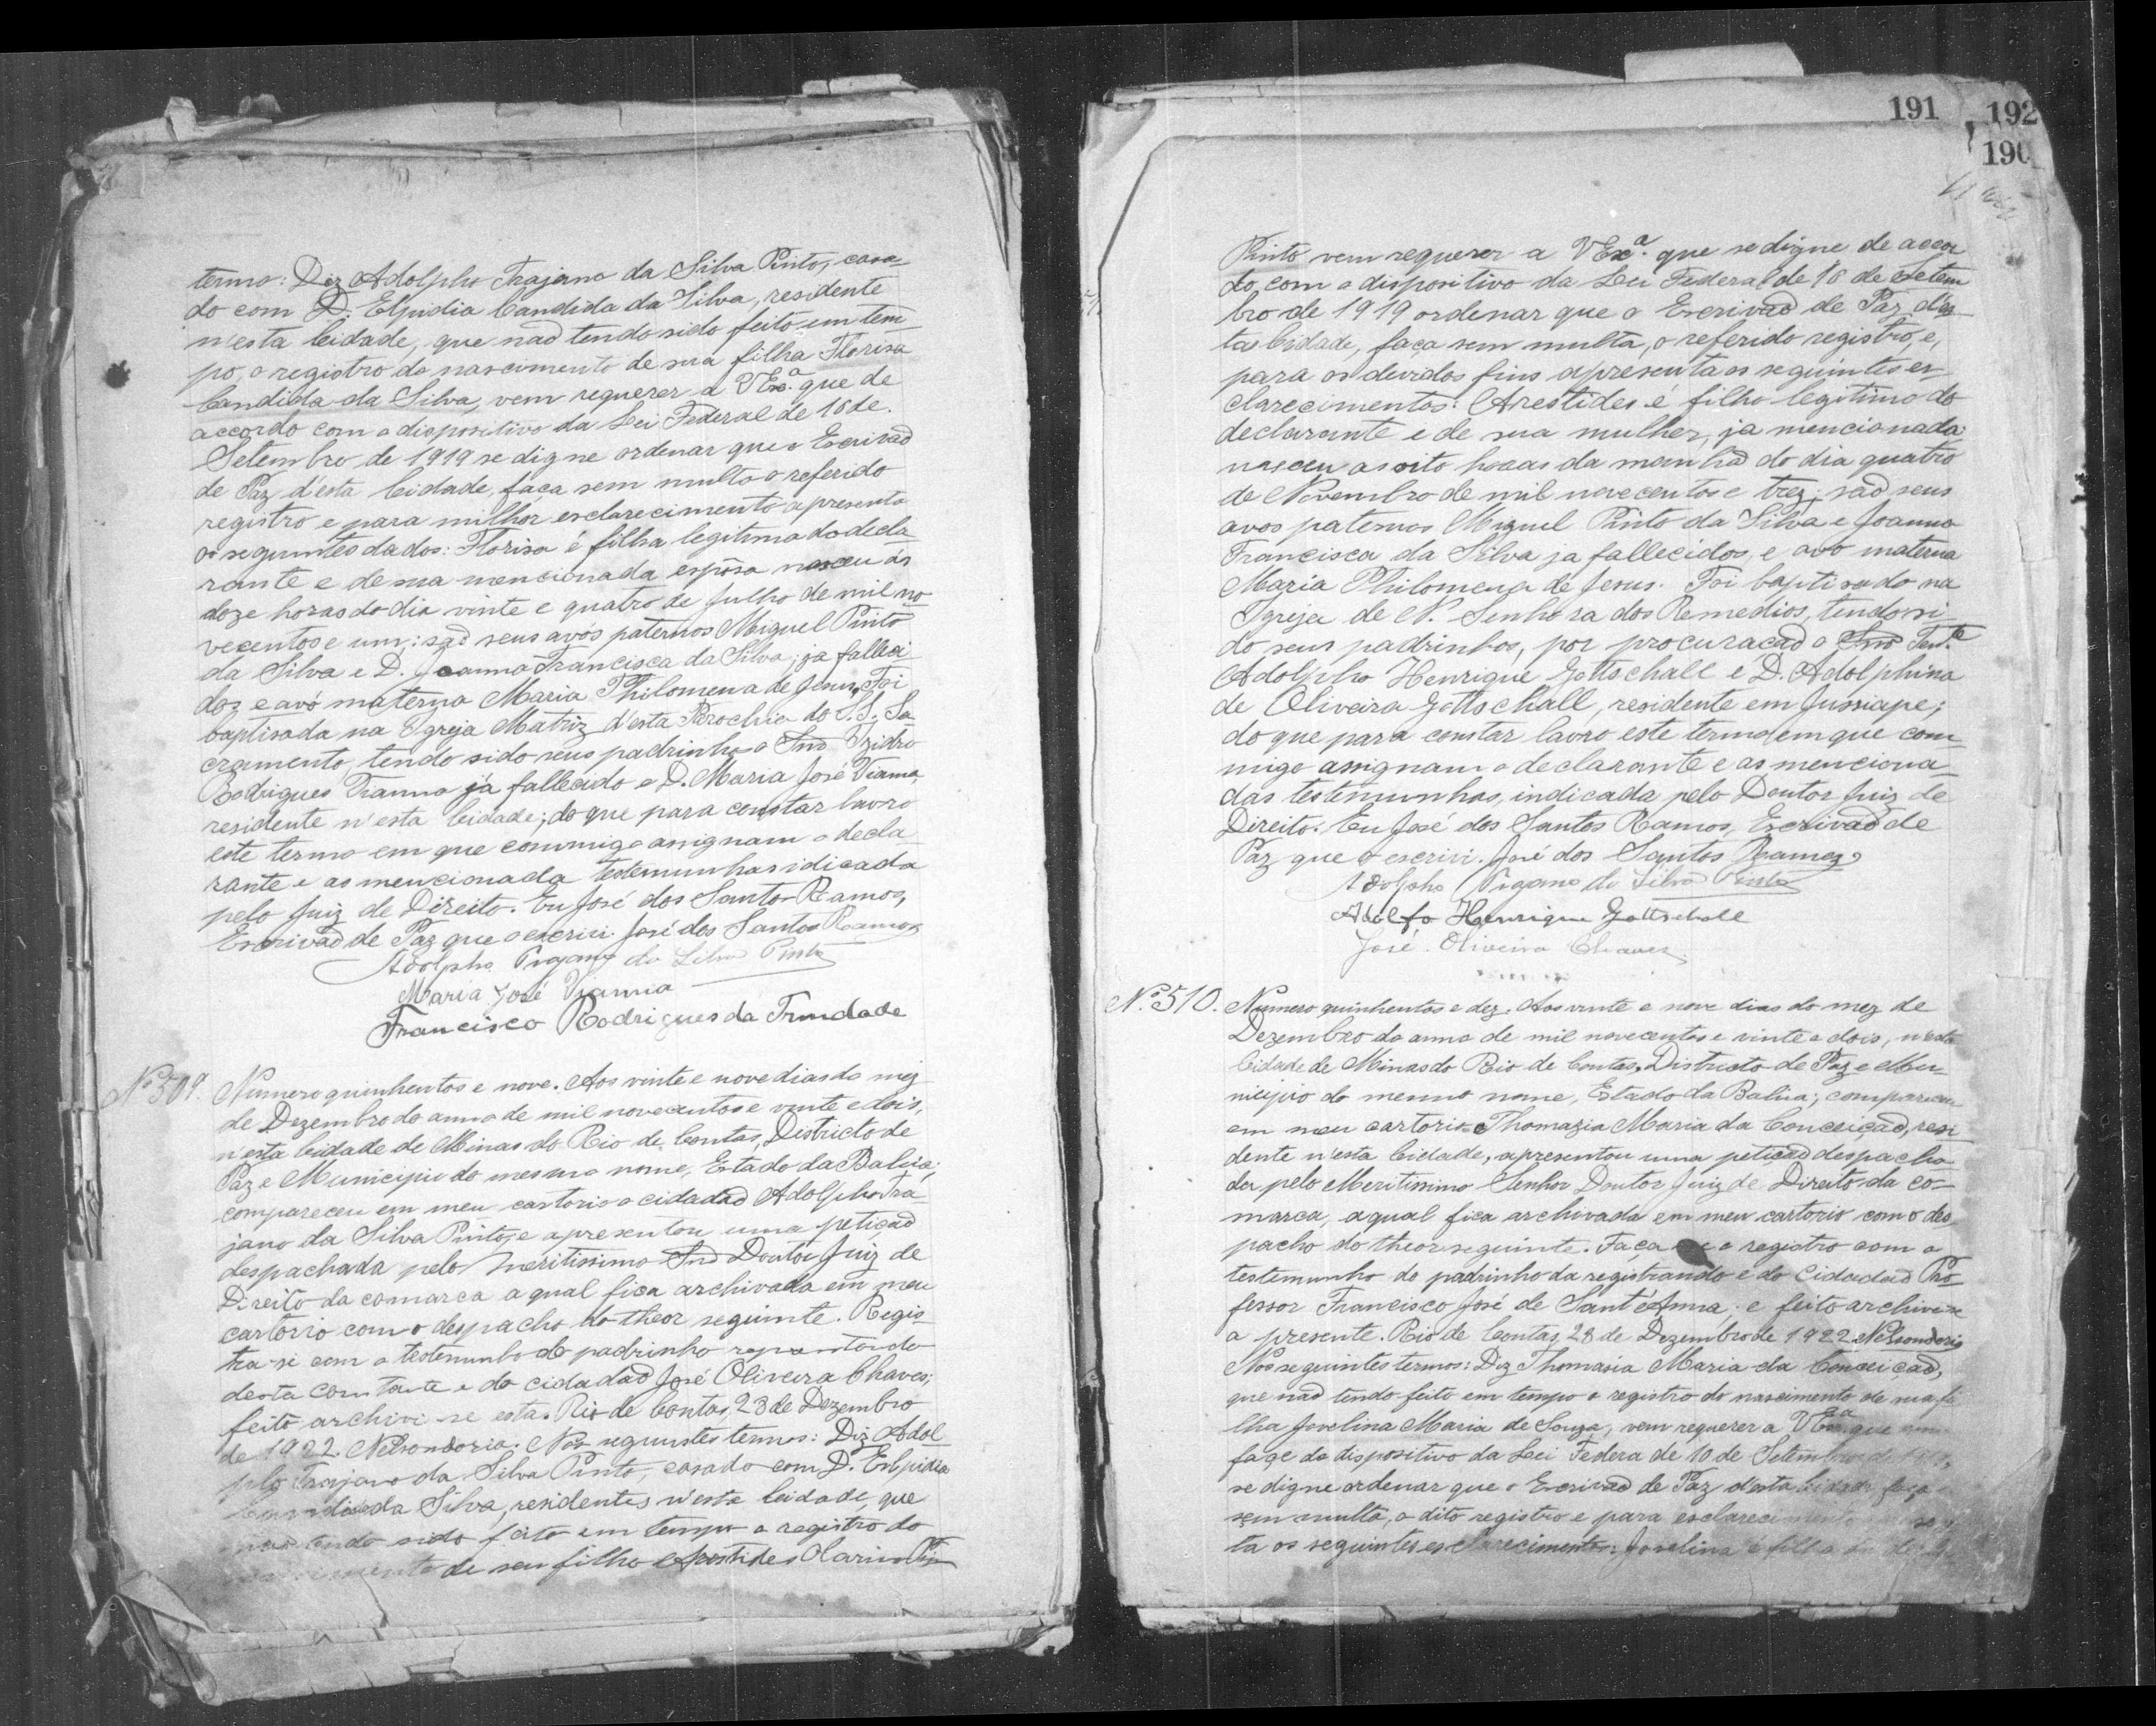 termo: Diz Adolpho Trajano da Silva Pinto, casa-
do com D. Elpidia Candida da Silva, residente
n'esta Cidade, que não tendo sido feito em tem
po, o registro do nascimento de sua filha Florisa
Candida da Silva, vem requerer a VExª. que de
accordo com o dispositivo da Lei Federal de 10 de
Setembro de 1919 se digne ordenar que o Escrivão
de Paz d'esta Cidade, faça sem multa o referido
registro e para milhor esclarecimento apresenta
os seguintes dados: Florisa é filha legitima do decla
rante e de sua mencionada espôsa nasceu ás
doze horas do dia vinte e quatro de Julho de mil no
vecentos e um; são seus avós paternos Miguel Pinto
da Silva e D. Joanna Francisca da Silva; ja falleci
dos e avó materna Maria Philomena de Jesus. Foi
baptisada na Igreja Matriz d'esta Parochia do S. S. Sa-
cramento, tendo sido seus padrinhos o Snr Izidro
Rodrigues Vianna já fallecido e D. Maria José Vianna,
residente n'esta Cidade; do que para constar lavro
este termo em que commigo assignam o decla
rante e as mencionada testemunhas idicada
pelo Juiz de Direito. Eu José dos Santos Ramos,
Escrivão de Paz que o escrivi. José dos Santos Ramos
Adolpho Trajano da Silva Pinto
Maria José Vianna
Francisco Rodrigues da Trindade
Nº 509. Numero quinhentos e nove. Aos vinte e nove dias do mez
de Dezembro do anno de mil novecentos e vinte e dois,
n'esta Cidade de Minas do Rio de Contas, Districto de
Paz e Municipio do mesmo nome, Estado da Bahia;
compareceu em meu cartorio o cidadão Adolpho Tra
jano da Silva Pinto, e apresentou uma petição
despachada pelo Meritissimo Snr Doutor Juiz de
Direito da comarca a qual fica archivada em meu
cartorio com o despacho do theor seguinte. Regis
tra-se com o testemunho do padrinho
desta e do cidadão José Oliveira Chaves;
feito archivi-se esta. Rio de Contas, 28 de Dezembro
de 1922. Nelson Doria. Nos seguintes termos: Diz Adol
pho Trajano da Silva Pinto, casado com D. Elpidia
Candida da Silva, residentes n'esta Cidade, que
não tendo sido feito em tempo o registro do
nascimento de seu filho Arestides Pin
191 192
190
Pinto vem requerer a VExª. que se digne de accor
do, com o dispositivo da Lei Federal de 10 de Setem
bro de 1919 ordenar que o Escrivão de Paz d'es
ta Cidade, faça sem multa, o referido registro, e,
para os devidos fins apresenta os seguintes es-
clarecimentos: Arestides é filho legitimo do
declarante e de sua mulher, ja mencionada;
nasceu as oito horas da manhã do dia quatro
de Novembro de mil novecentos e trez; são seus
avos paternos Miguel Pinto da Silva e Joanna
Francisca da Silva ja fallecidos, e avó materna
Maria Philomena de Jesus. Foi baptisado na
Igreja de N. Senhora dos Remedios, tendo si
do seus padrinhos, por procuração o Snr Tente
Adolpho Henrique Gottschall e D. Adolphina
de Oliveira Gottschall, residente em Jussiape;
do que para constar lavro este termo em que com-
migo assignam o declarante e as menciona-
das testemunhas, indicada pelo Doutor Juiz de
Direito. Eu José dos Santos Ramos, Escrivão de
Paz que o escrivi. José dos Santos Ramos
Adolpho Trajano da Silva Pinto
Adolfo Henrique Gottschall
José Oliveira Chaves
Nº 510. Numero quinhentos e dez. Aos vinte e nove dias do mez de
Dezembro do anno de mil novecentos e vinte e dois, n'esta
Cidade de Minas do Rio de Contas, Districto de Paz e Mu-
nicipio do mesmo nome, Estado da Bahia; compareceu
em meu cartorio Thomazia Maria da Conceição, resi
dente n'esta Cidade, apresentou uma petição despacha
da pelo Meritissimo Senhor Doutor Juiz de Direito da co-
marca, a qual fica archivada em meu cartorio com o des
pacho do theor seguinte. Faça o registro com o
testemunho do padrinho da registrando e do Cidadão Pro
fessor Francisco José de Sant'Anna; e feito archive-se
a presente. Rio de Contas, 28 de Dezembro de 1922 Nelson Doria
Nos seguintes termos: Diz Thomasia Maria da Conceição,
que não tendo feito em tempo o registro do nascimento de sua fi
lha Jovelina Maria de Souza, vem requerer a VExª que em
façe do dispositivo da Lei Federa de 10 de Setembro de
se digne ordenar que o Escrivão de Paz d'esta Cidade faça
sem multa, o dito registro e para esclarecimento
ta os seguintes esclarecimentos: Jovelina é filha